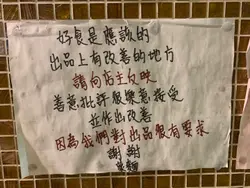 好食是應該的
出品上有改善的地方
請向店主反映
善意批評服樂意接受
並作出改善
因為我們對出品很有要求
謝謝